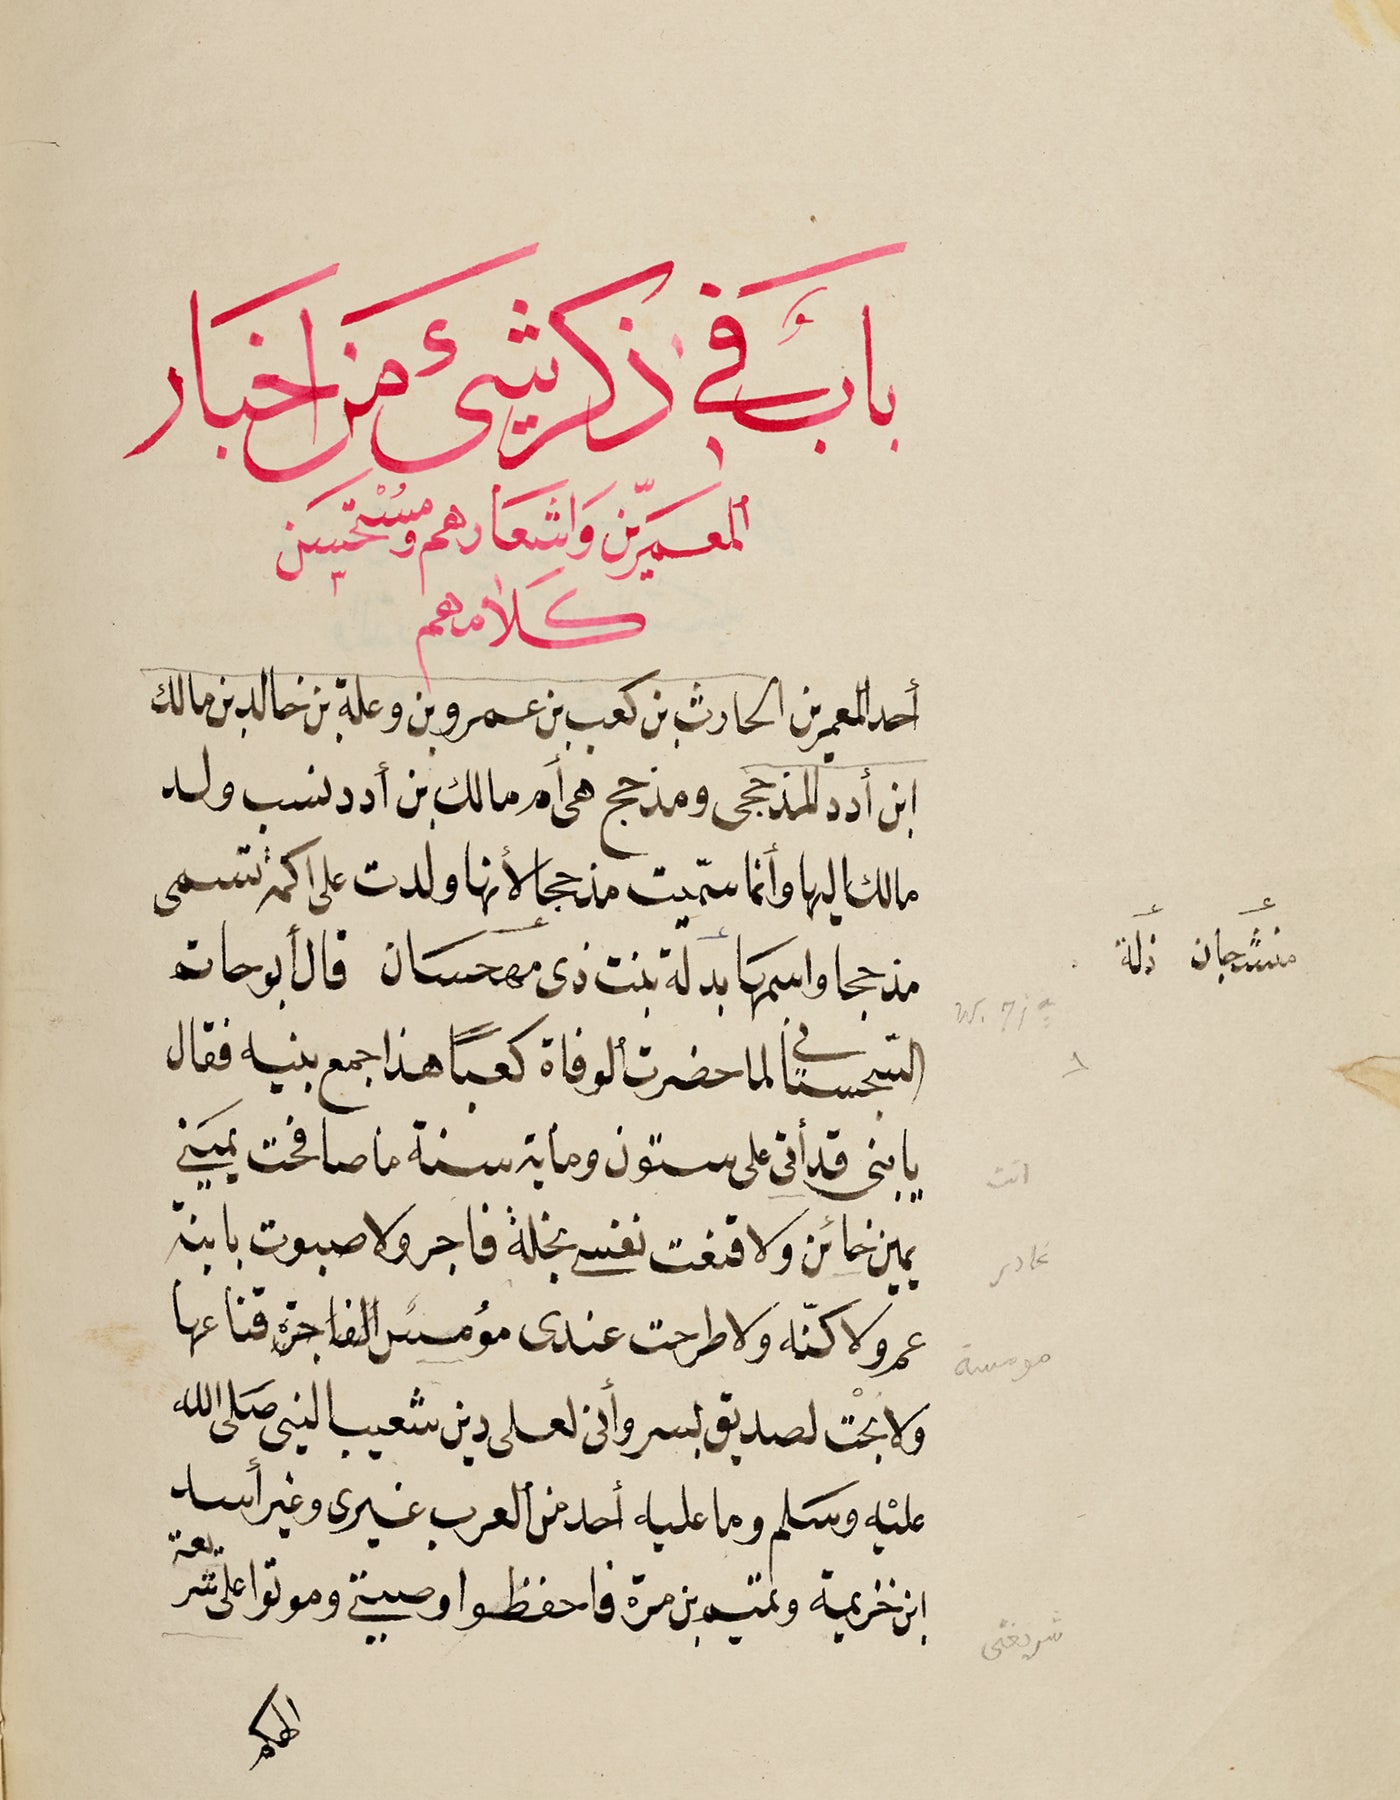 باب في ذكر شيء من اخبار
المعمّرين واشعارهم ومستحسن
كلامهم
أحد المعمرين الحارث بن كعب بن عمرو بن وعلة بن خالد بن مالك
ابن أدد المذحجى ومذحج هى أم مالك بن أدد نسب ولد
مالك اليها وأنما سمّيت مذحجا لأنها ولدت على اكمة تسمى
مذحجا واسمها بدلة بنت ذى مهحسان قال أبو حاتم
السّجستانى لما حضرت ألوفاة كعبًا هذا جمع بنيه فقال
يا بنى قد أتى على ستون وماية سنة ما صافحت يمينى
يمين خائن ولا قنعت نفسى بخلة فاجر ولا صبوت بابنة
عم ولا كنّه ولا طرحت عندى مؤمس الفاجرة قناعها
ولا بحْت لصديق بسر وأنى لعلى دين شعيب النبى صلى الله
عليْه وسلم وما عليه أحد من ألعرب غيرى وغير أسد
ابن خزيمة وتميم بن مرة فاحفظوا وصيتى وموتوا على شريعة
الهكم
منشجان ذلة
W. 71
انت
غادر
مومسة
شريعتى